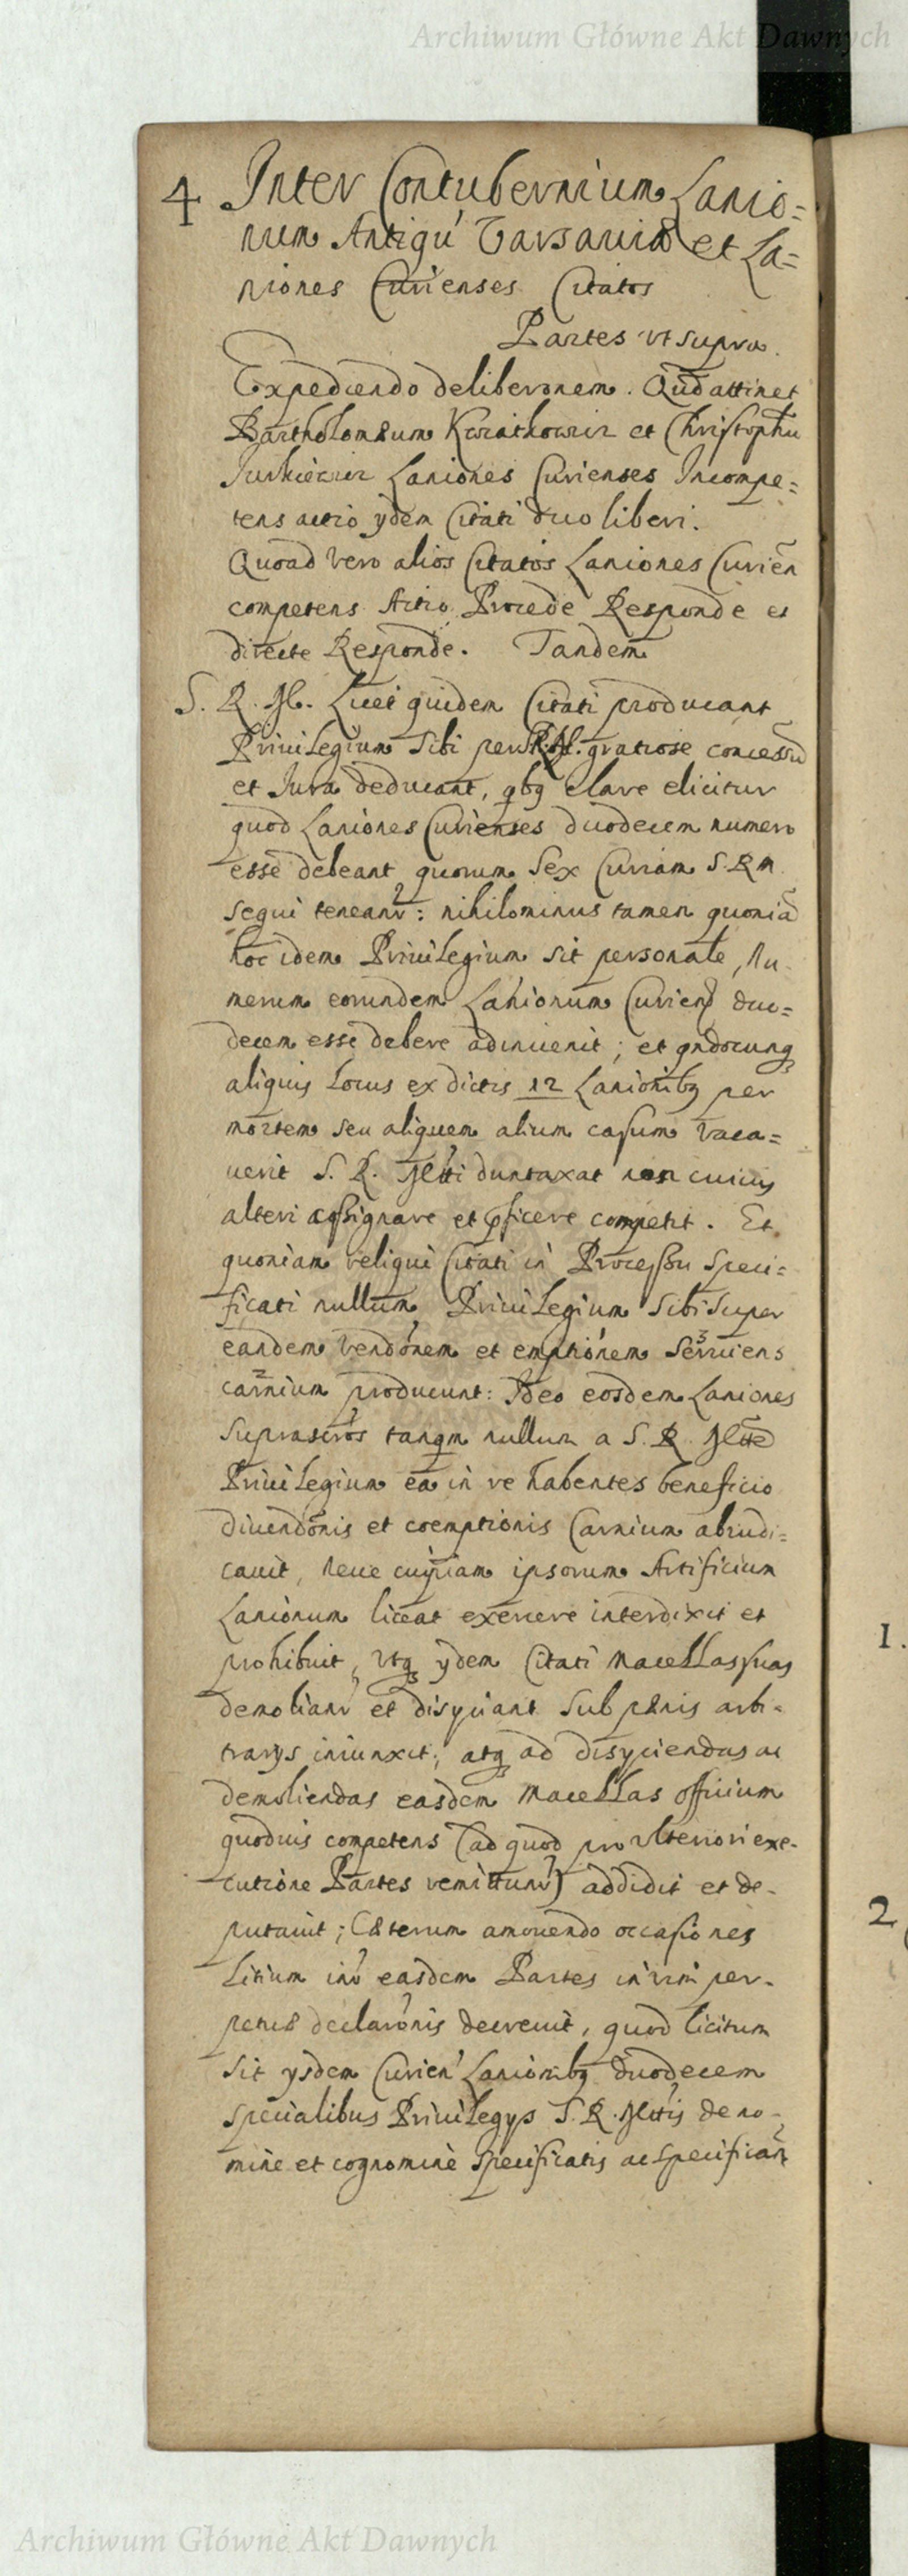 Archiwum Główne Akt Dawnych
4 Inter Contubernium Lanio=
num Antiqu' Varsaviæ et La=
niones Curienses Citatos
Partes ut supra.
Expediendo deliberõnem. Quod attinet
Bartholomæum Kwiatkowicz et Christophu
Jurkiewicz Laniones Curienses Incompe=
tens actio ydem Citati duo liberi.
Quoad vero alios Citatos Laniones Curieñ
competens Actio. Procede Responde et
directe Responde. Tandem
S. R. M. Licet quidem Citati producant
Privilegium Sibi per S.R.M. gratiose concessũ
et Jura deducant, qbg clare elicitur
quod Laniones Curienses duodecem numero
esse debeant quorum Sex Curiam S. R M
sequi teneanr: nihilominus tamen quoniã
hoc idem Privilegium sit personale, Nu
merum eorundem Lanionum Curien duo=
decem esse debere adinvenit; et qndocunq
aliquis locus ex dictis 12 Lanionibg per
mortem seu aliquem alium casum vaca=
uerit S. R. Mtti duntaxat non cuius
alteri assignare et pficere competit. Et
quoniam reliqui Citati in Processu speci=
ficati nullum Privilegium Sibi super
eandem vendõnem et emptiónem
carnium producunt: Ideo eosdem Laniones
suprascrõs tanqm nullum a S. R. Mtte
Privilegium ea in re habentes beneficio
divendõnis et coemptionis Carnium abiudi=
cauit, neue cuipiam ipsorum Artificium
Lanionum liceat exercere interdixit et
prohibuit, utq ydem Citati macellas suas
demolianr et disyciant sub pænis arbi=
trarys iniunxit; atq ad disyciendas ac
demoliendas easdem macellas officium
quoduis competens (ad quod pro ulteriori exe=
cutione Partes remittunr) addidit et de=
putauit; Cæterum amouendo occasiones
litium inr easdem Partes in vim per=
petuæ declarõnis decreuit, quod licitum
sit ysdem Curien' Lanionibg duodecem
specialibus Privilegys S. R. Mttis de no=
mine et cognomine specificatis ac specificañ
1.
2
Archiwum Główne Akt Dawnych